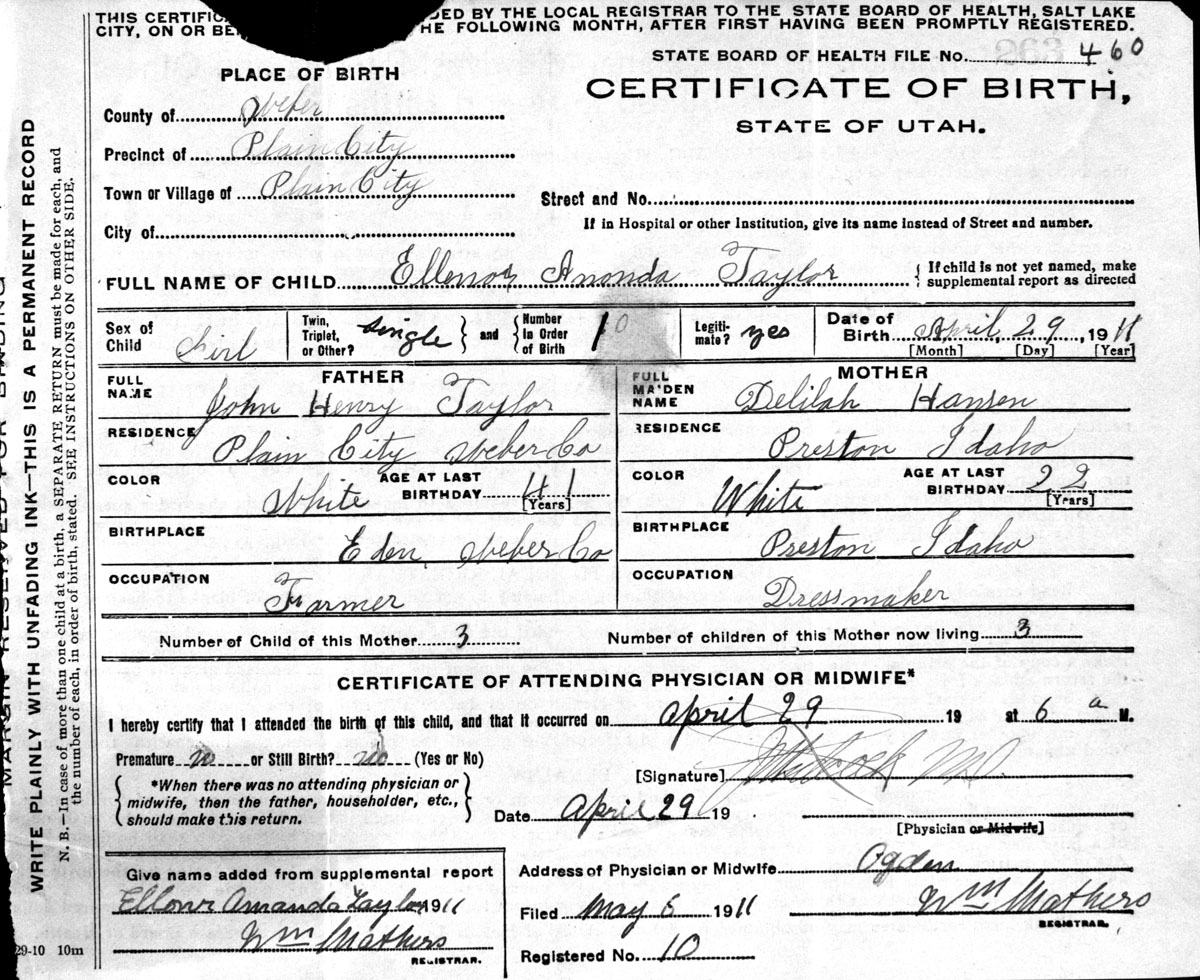 THIS CERTIFIC DED BY THE LOCAL REGISTRAR TO THE STATE BOARD OF HEALTH, SALT LAKE
CITY, ON OR BE HE FOLLOWING MONTH, AFTER FIRST HAVING BEEN PROMPTLY REGISTERED.
STATE BOARD OF HEALTH FILE No. 460
PLACE OF BIRTH
CERTIFICATE OF BIRTH,
STATE OF UTAH.
County of Weber
Precinct of Plain City
Town or Village of Plain City
Street and No.
If in Hospital or other Institution, give its name instead of Street and number.
City of
FULL NAME OF CHILD Ellenor Ananda Taylor { If child is not yet named, make
supplemental report as directed
Sex of Child Girl
Twin, Triplet, or Other? single } and { Number in Order of Birth 10
Legiti-mate? yes
Date of Birth April, 29, 1911
[Month] [Day] [Year]
FATHER
FULL NAME John Henry Taylor
RESIDENCE Plain City Weber Co
COLOR White AGE AT LAST BIRTHDAY 41
[Years]
BIRTHPLACE Eden, Weber Co
OCCUPATION Farmer
MOTHER
FULL MAIDEN NAME Delilah Hansen
RESIDENCE Preston Idaho
COLOR White AGE AT LAST BIRTHDAY 22
[Years]
BIRTHPLACE Preston Idaho
OCCUPATION Dressmaker
Number of Child of this Mother 3 Number of children of this Mother now living 3
CERTIFICATE OF ATTENDING PHYSICIAN OR MIDWIFE*
I hereby certify that I attended the birth of this child, and that it occurred on April 29 19 at 6 a M.
Premature no or Still Birth? no (Yes or No)
[Signature] M.D.
{ *When there was no attending physician or
midwife, then the father, householder, etc.,
should make this return. }
Date April 29 19
[Physician or Midwife]
Give name added from supplemental report
Ellonr Amanda Taylor 1911
Wm Mathers
REGISTRAR.
Address of Physician or Midwife Ogden
Filed May 6 1911 Wm Mathers
REGISTRAR.
Registered No. 10
29-10 10m
MARGIN RESERVED FOR BINDING
WRITE PLAINLY WITH UNFADING INK—THIS IS A PERMANENT RECORD
N. B.—In case of more than one child at a birth, a SEPARATE RETURN must be made for each, and
the number of each, in order of birth, stated. SEE INSTRUCTIONS ON OTHER SIDE.